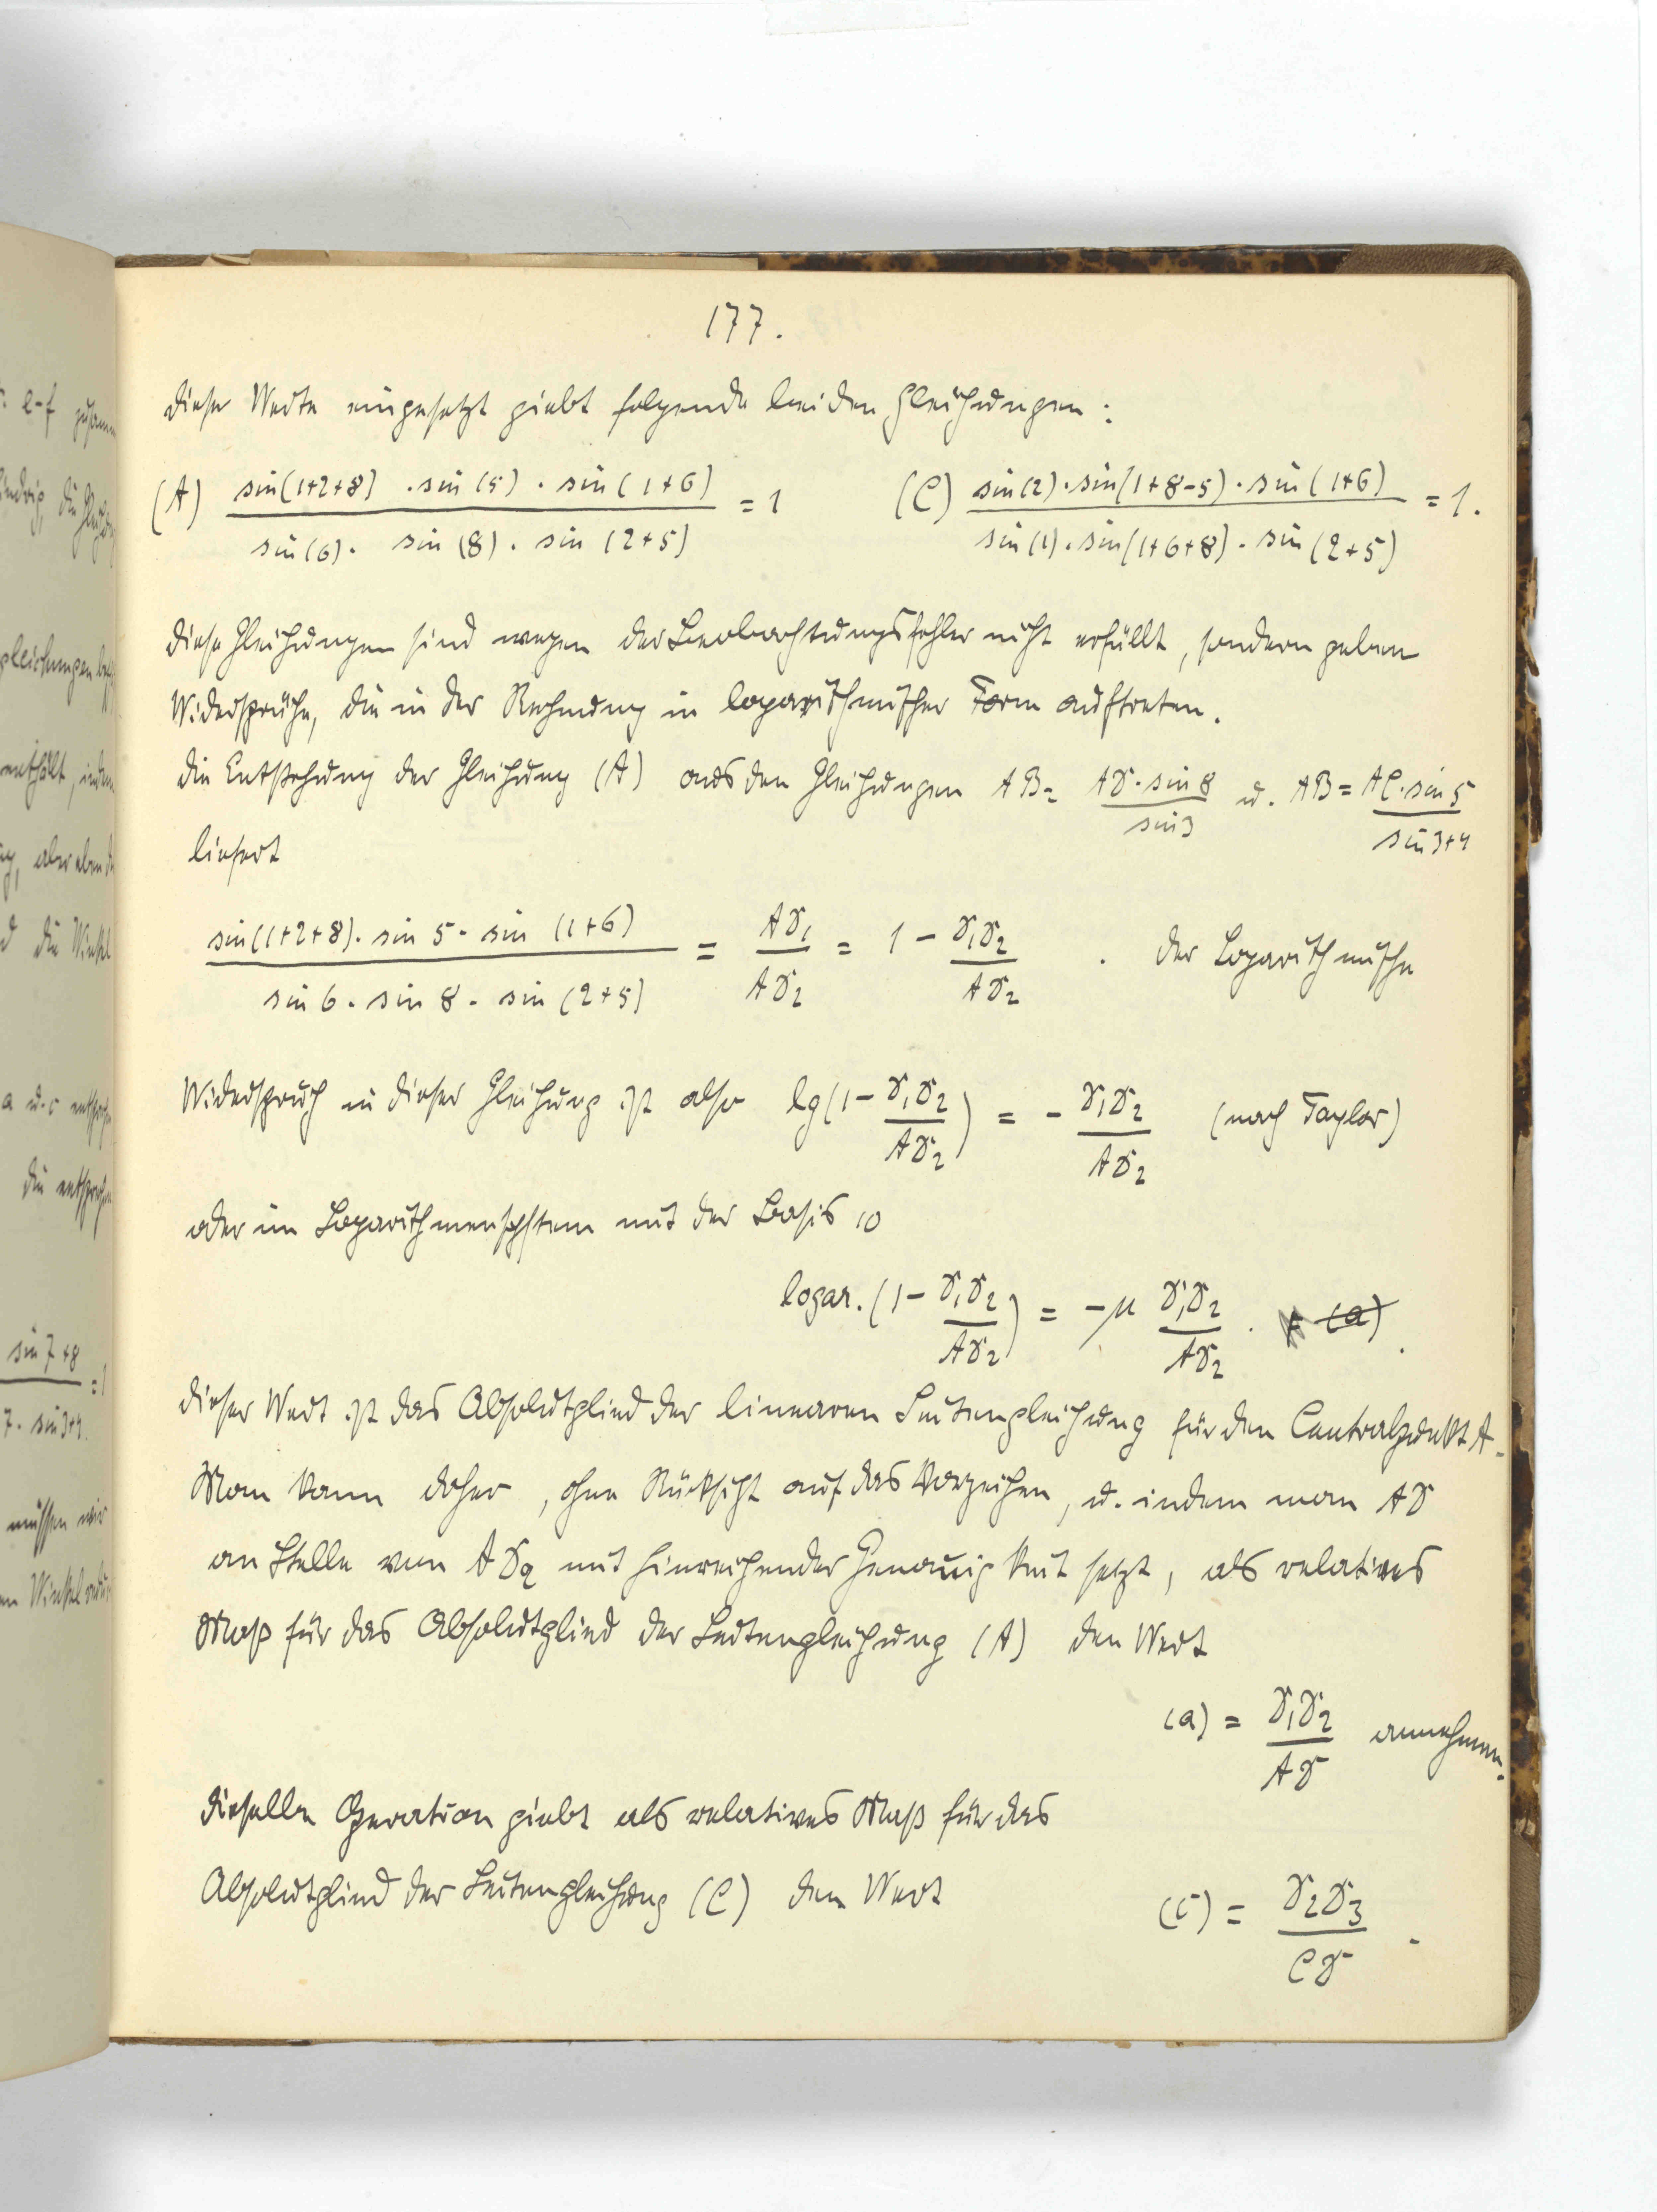 177.
Dieser Werte eingesetzt giebt folgende beiden Gleichungen:
(A) sin(1+2+8) · sin(5) · sin(1+6) / sin(6) · sin(8) · sin(2+5) = 1 (C) sin(2) · sin(1+8-5) · sin(1+6) / sin(1) · sin(1+6+8) · sin(2+5) = 1.
Diese Gleichungen sind wegen der Beobachtungsfehler nicht erfüllt, sondern geben
Widersprüche, die in der Rechnung in logarithmischer Form auftreten.
Die Entstehung der Gleichung (A) aus den Gleichungen AB = AD · sin 8 / sin 3 u. AB = AC · sin 5 / sin 3+4
liefert
sin(1+2+8) · sin 5 · sin (1+6) / sin 6 · sin 8 · sin (2+5) = AD₁ / AD₂ = 1 - D₁D₂ / AD₂ . Der Logarithmische
Widerspruch in dieser Gleichung ist also lg(1 - D₁D₂ / AD₂) = - D₁D₂ / AD₂ (nach Taylor)
oder im Logarithmensystem mit der Basis 10
logar. (1 - D₁D₂ / AD₂) = -μ D₁D₂ / AD₂ . (a) .
Dieser Wert ist das Absolutglied der linearen Seitengleichung für den Centralpunkt A.
Man kann daher, ohne Rücksicht auf das Vorzeichen, u. indem man AD
an Stelle von AD₂ mit hinreichender Genauigkeit setzt, als relatives
Maß für das Absolutglied der Seitengleichung (A) den Wert
(a) = D₁D₂ / AD annehmen.
Dieselbe Operation giebt als relatives Maß für das
Absolutglied der Seitengleichung (C) den Wert
(c) = D₂D₃ / CD .